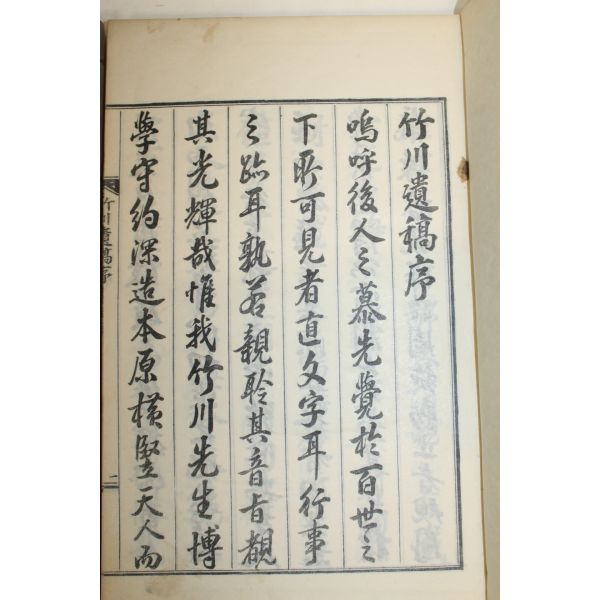 竹川遺稿序
嗚呼後人之慕先覺於百世之
下所可見者直文字耳行事
之跡耳孰若親聆其音旨覩
其光輝哉惟我竹川先生博
學守約深造本原橫竪天人而
竹川遺稿序
一